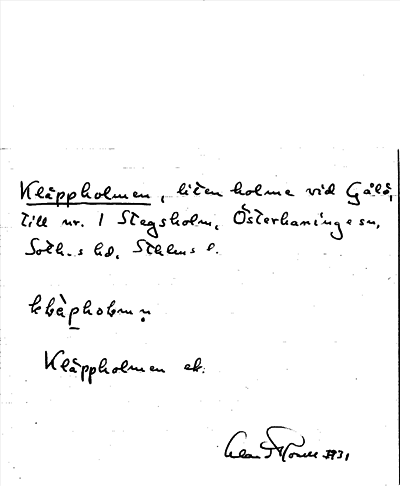 Kläppholmen, liten holme vid Gålö,
till nr. 1 Stegsholm, Österhaninge sn,
Soth.s hd, Sthlms l.
Kläppholmen ek.
1931